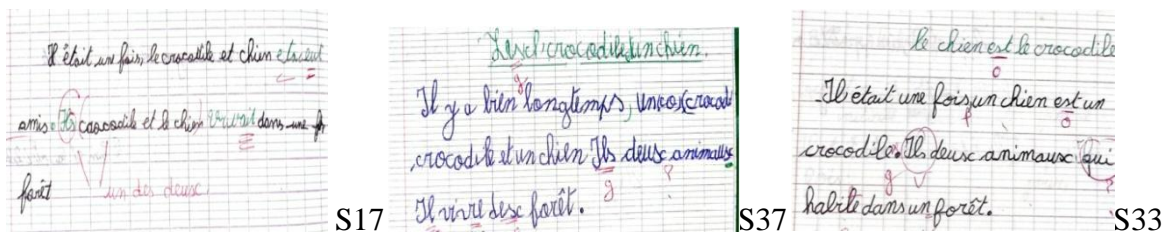 Il était une fois, le crocodile et chien etaient
amis. Ils caocodile et le chien vivait dans une for
forêt
un des deux
S17
crocodile un chien.
Il y a bien longtemps, un crocod
crocodile et un chien Ils deux animaux
g
Il vivre des forêt.
S37
le chien est le crocodile
o
Il était une fois un chien est un
p o
crocodile. Ils deux animaux qui
g
habite dans un forêt.
S33